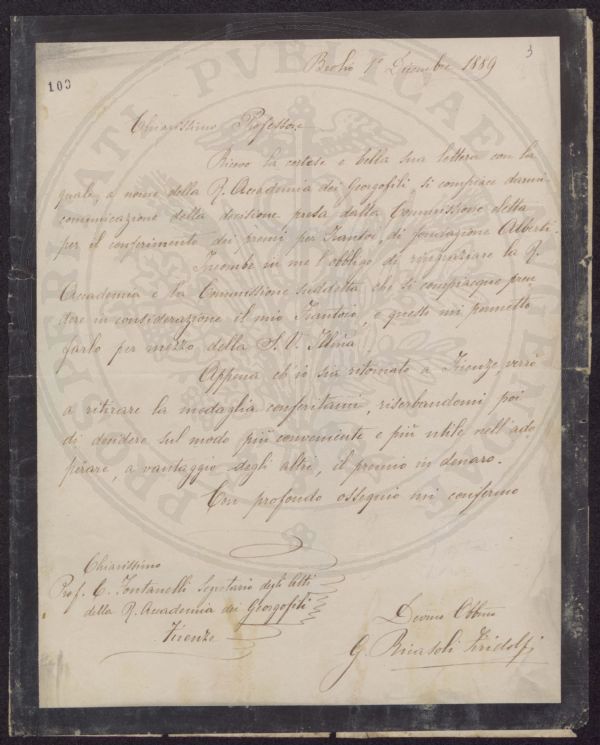 3
103
Brolio 1º Dicembre 1889
Chiarissimo Professore
Ricevo la cortese e bella sua lettera con la
quale, a nome della R. Accademia dei Georgofili, si compiace darmi
comunicazione della decisione presa dalla Commissione eletta
per il conferimento dei premi per Frantoi, di fondazione Alberti.
Incombe in me l'obbligo di ringraziare la R.
Accademia e la Commissione suddetta che si compiacque pren
dere in considerazione il mio Frantoio, e questo mi permetto
farlo per mezzo della S. V. Illma
Appena ch'io sia ritornato a Firenze, verrò
a ritirare la medaglia conferitami, riserbandomi poi
di decidere sul modo più conveniente e più utile nell'ado
perare, a vantaggio degli altri, il premio in denaro.
Con profondo ossequio mi confermo
Chiarissimo
Prof. C. Fontanelli Segretario degli Atti
della R. Accademia dei Georgofili
Firenze
Devmo Obbmo
G. Ricasoli Firidolfi
PROSPERITATI PVBLICAE AVGENDAE